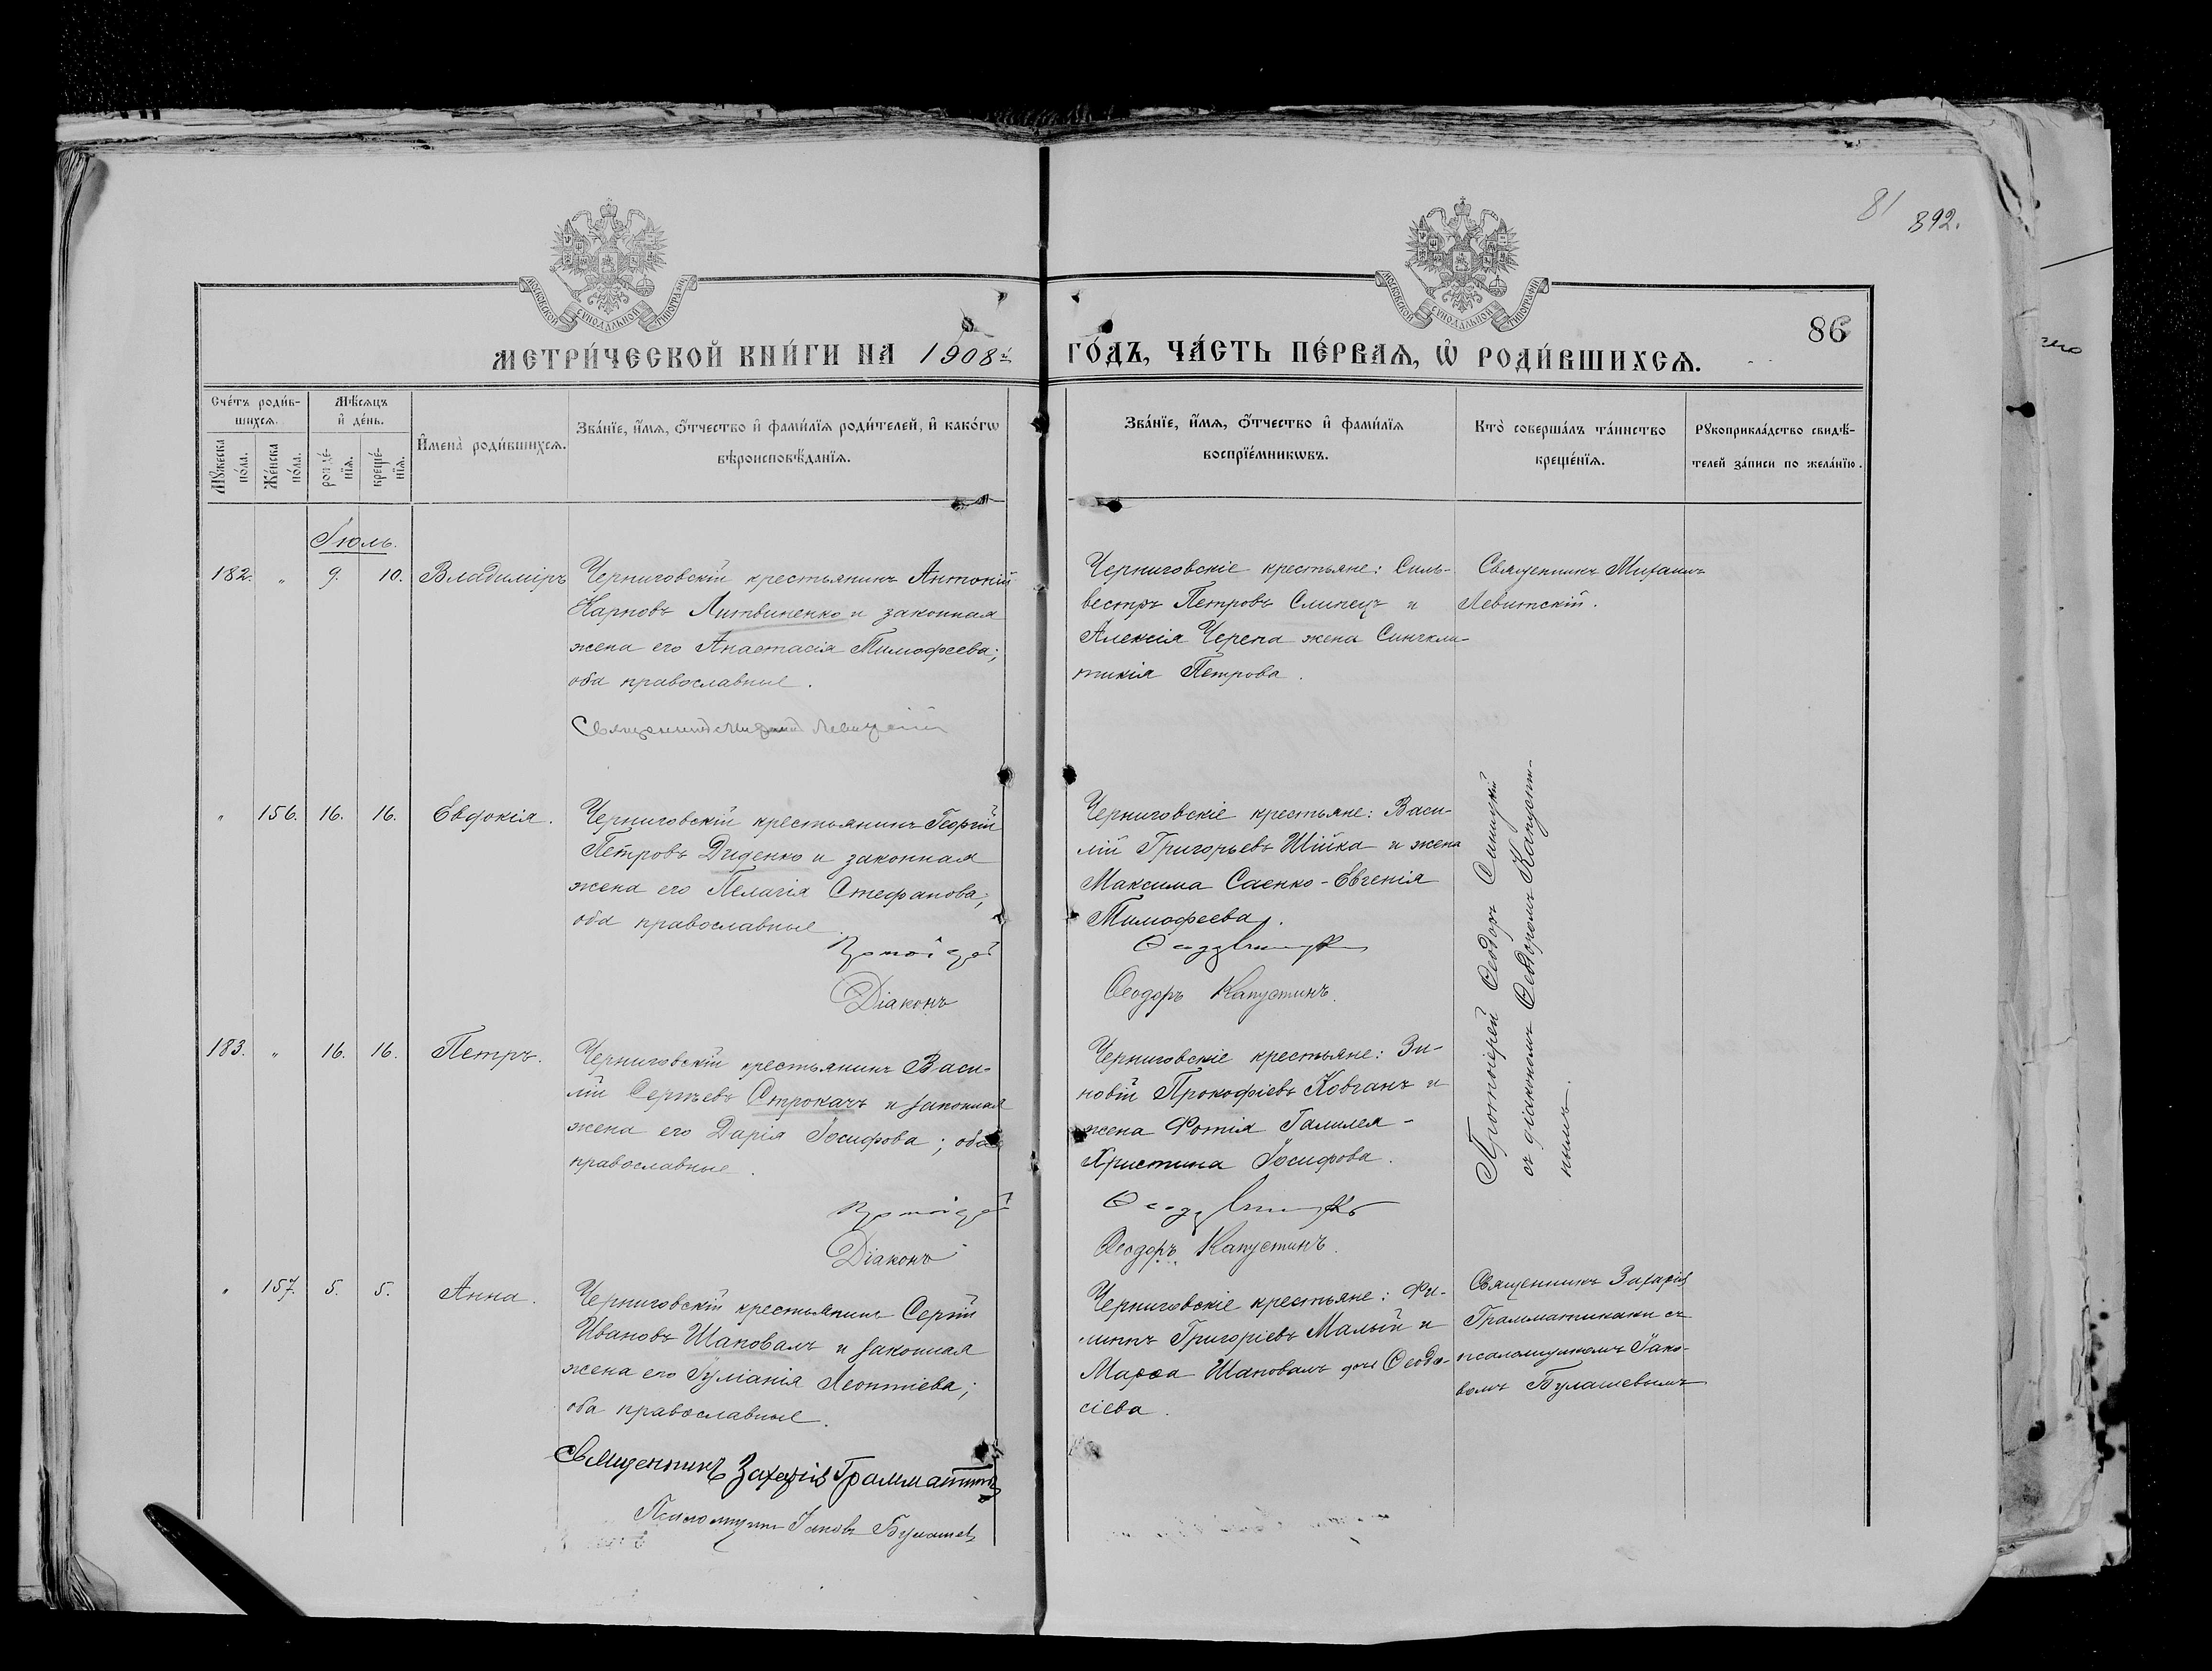 81
892.
МОСКОВСКОЙ СѴНОДАЛЬНОЙ ТИПОГРАФІИ
МОСКОВСКОЙ СѴНОДАЛЬНОЙ ТИПОГРАФІИ
86
МЕТРИ́ЧЕСКОЙ КНИ́ГИ НА 1908й ГО́ДЪ, ЧА́СТЬ ПЕ́РВАѦ, Ѽ РОДИ́ВШИХСѦ.
Сче́тъ роди́в-
шихсѧ.
Мѣ́сѧцъ
и҆ де́нь.
Мꙋ́жеска по́ла.
Же́нска по́ла.
рожде́-
нїѧ.
креще́-
нїѧ.
И҆мена̀ роди́вшихсѧ.
Зва́нїе, и҆́мѧ, ѻ҆́тчество и҆ фами́лїѧ роди́телей, и҆ како́гѡ
вѣроисповѣ́данїѧ.
Зва́нїе, и҆́мѧ, ѻ҆́тчество и҆ фами́лїѧ
воспрїе́мникѡвъ.
Кто̀ соверша́лъ та́инство
креще́нїѧ.
Рꙋкоприкла́дство свидѣ́-
телей за́писи по жела́нїю.
Іюль.
182. " 9. 10. Владиміръ
Черниговскій крестьянинъ Антоній
Карповъ Литвиненко и законная
жена его Анастасія Тимофеева;
оба православные.
Священникъ Михаилъ Левитскій
Черниговскіе крестьяне: Силь-
вестръ Петровъ Слипецъ и
Алексія Черепа жена Синкли-
тикія Петрова.
Священникъ Михаилъ
Левитскій.
" 156. 16. 16. Евдокія.
Черниговскій крестьянинъ Георгій
Петровъ Диденко и законная
жена его Пелагія Стефанова;
оба православные.
Протоіерей
Діаконъ
Черниговскіе крестьяне: Васи-
лій Григорьевъ Шійка и жена
Максима Саенко-Евгенія
Тимофеева.
Ѳеодоръ Капустинъ.
Протоіерей Ѳеодоръ Синицкій
съ діакономъ Ѳеодоромъ Капуст-
нымъ.
183. " 16. 16. Петръ.
Черниговскій крестьянинъ Васи-
лій Сергѣевъ Строкачъ и законная
жена его Дарія Іосифова; оба
православные.
Протоіерей
Діаконъ
Черниговскіе крестьяне: Зи-
новій Прокофіевъ Ковганъ и
жена Фотія Галилея-
Христина Іосифова.
Ѳеодоръ Капустинъ.
" 157. 5. 5. Анна.
Черниговскій крестьянинъ Сергій
Ивановъ Шаповалъ и законная
жена его Іуліанія Леонтіева;
оба православные.
Священникъ Захарія
Псаломщикъ Іаковъ Булашев
Черниговскіе крестьяне: Фи-
липпъ Григоріевъ Малый и
Марѳа Шаповалъ дочь Ѳеодо-
сіева.
Священникъ Захарія
Грамматикаки съ
псаломщикомъ Іако-
вомъ Булашевымъ